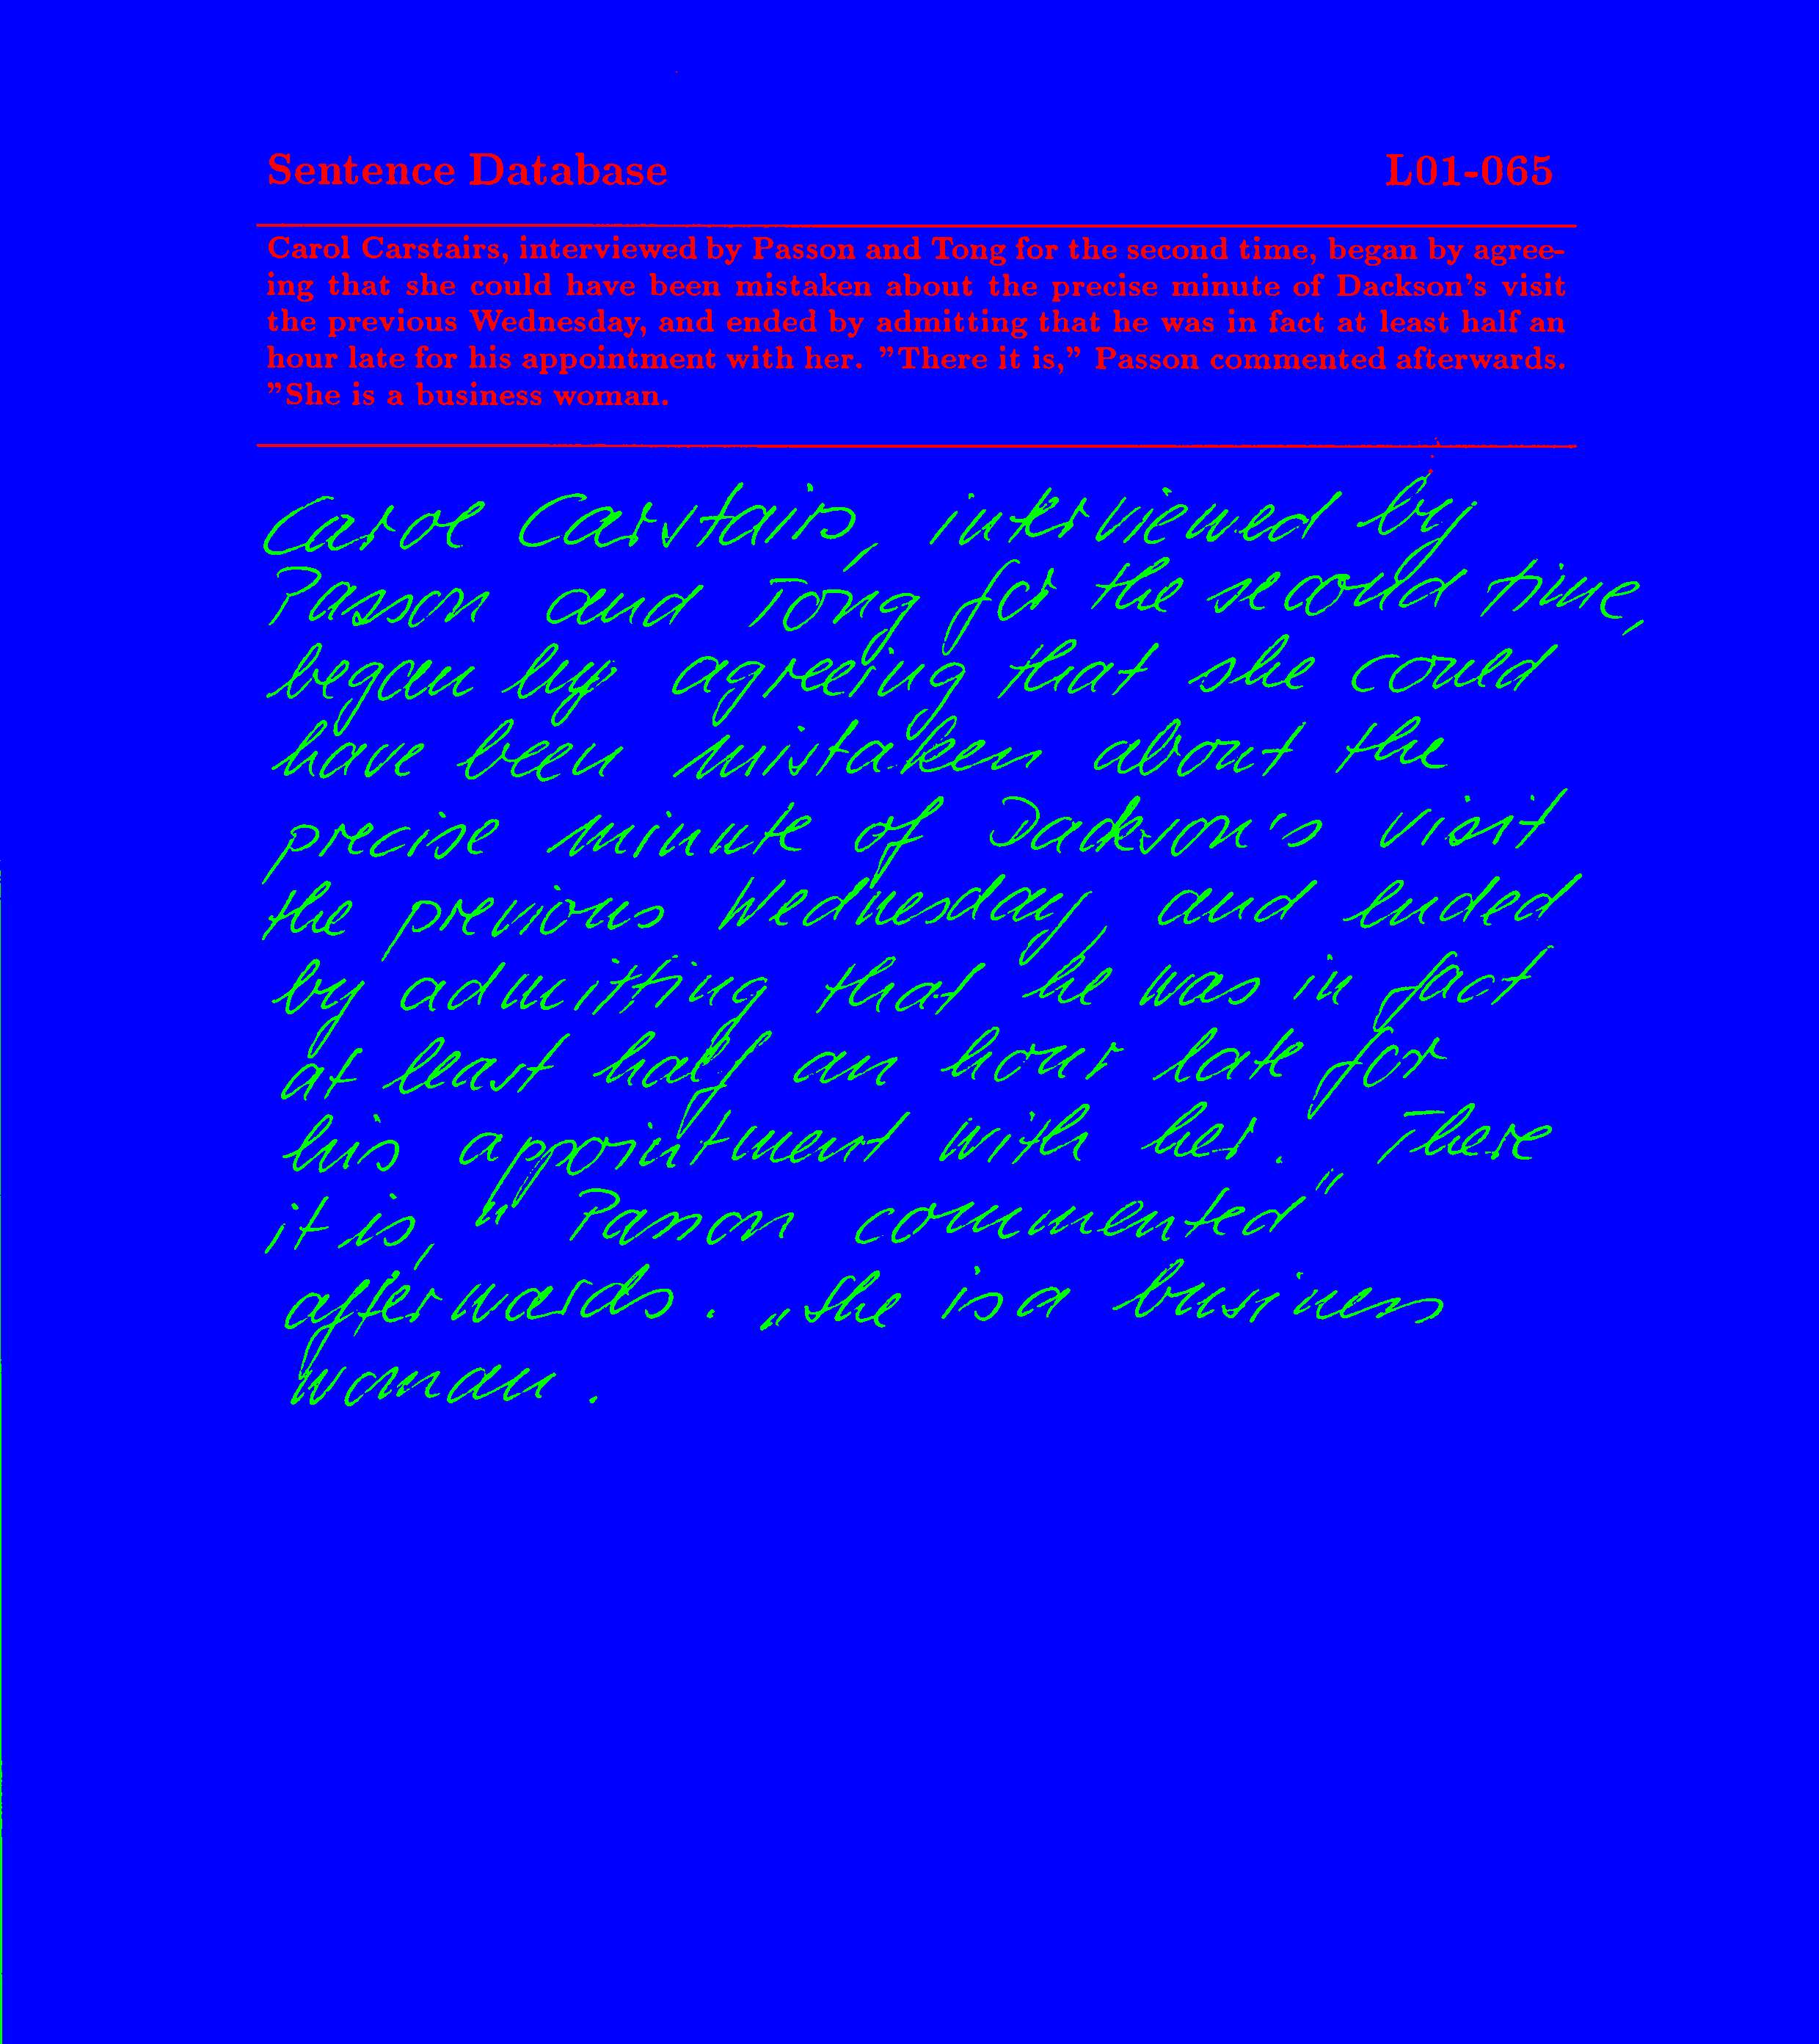 Sentence Database L01-065
Carol Carstairs, interviewed by Passon and Tong for the second time, began by agree-
ing that she could have been mistaken about the precise minute of Dackson's visit
the previous Wednesday, and ended by admitting that he was in fact at least half an
hour late for his appointment with her. "There it is," Passon commented afterwards.
"She is a business woman.
Carol Carstairs, interviewed by
Passon and Tong for the second time,
began by agreeing that she could
have been mistaken about the
precise minute of Dackson's visit
the previous Wednesday, and ended
by admitting that he was in fact
at least half an hour late for
his appointment with her. „There
it is," Passon commented"
afterwards. „She is a business
woman.